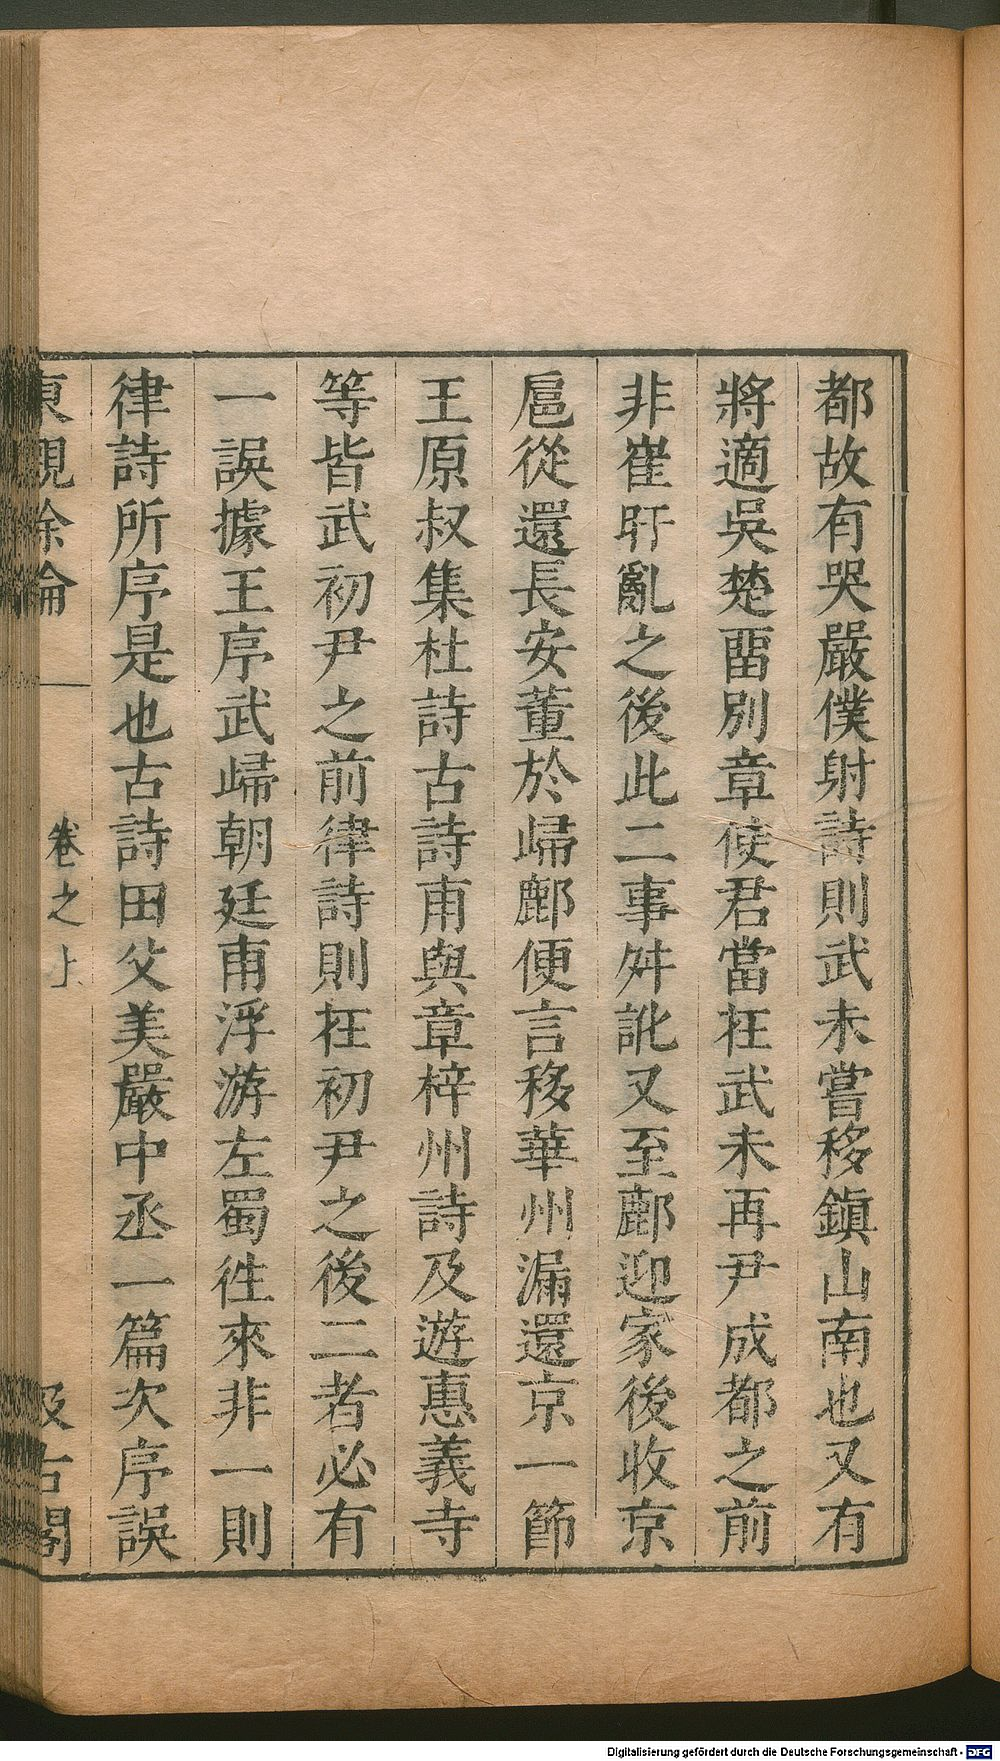 都故有哭嚴僕射詩則武未嘗移鎮山南也又有
將適吳楚畱別章使君當在武未再尹成都之前
非崔旰亂之後此二事舛訛又至鄜迎家後收京
扈從還長安董於歸鄜便言移華州漏還京一節
王原叔集杜詩古詩甫與章梓州詩及遊惠義寺
等皆武初尹之前律詩則在初尹之後二者必有
一誤據王序武歸朝廷甫浮游左蜀往來非一則
律詩所序是也古詩田父美嚴中丞一篇次序誤
東觀餘論 卷之上 汲古閣
Digitalisierung gefördert durch die Deutsche Forschungsgemeinschaft - DFG